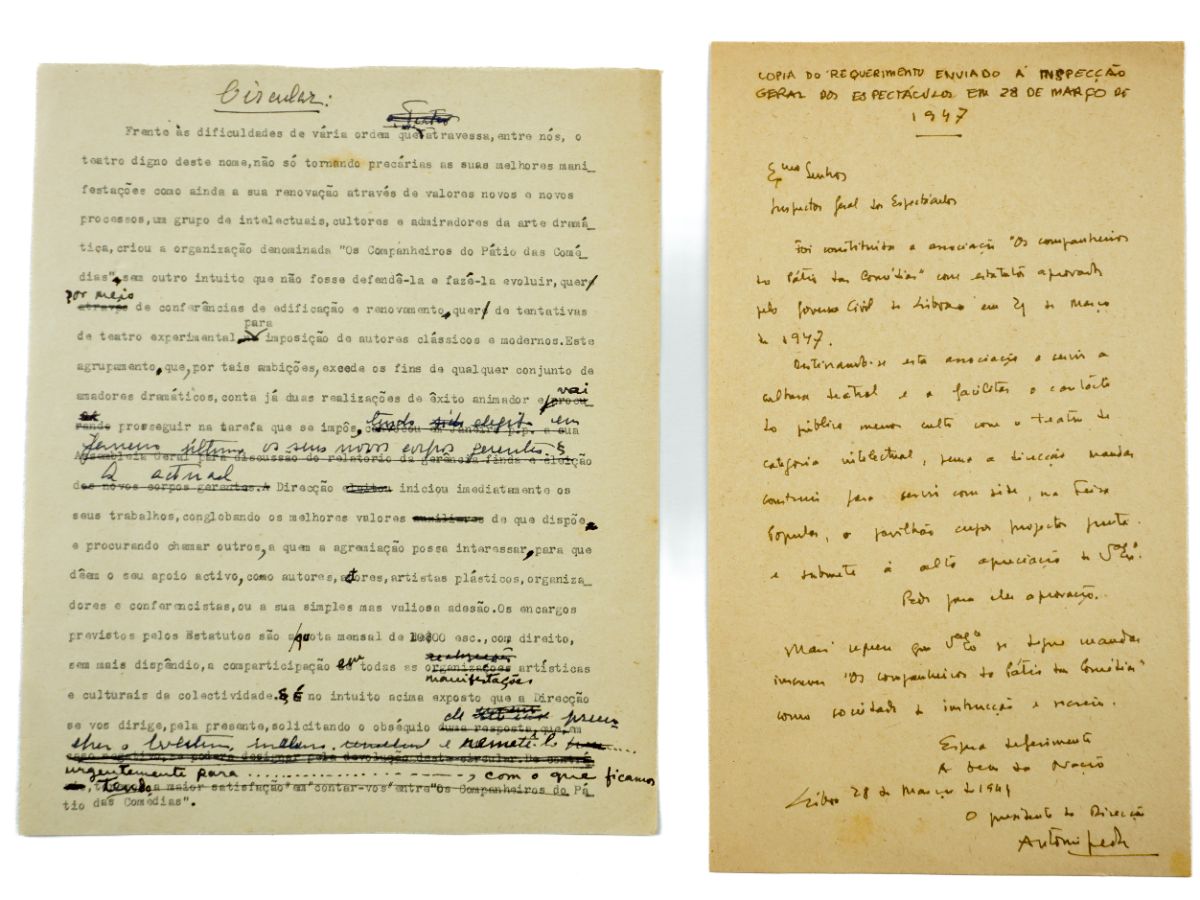 Circular:
Frente às dificuldades de vária ordem que atravessa,entre nós, o
teatro digno deste nome,não só tornando precárias as suas melhores mani_
festações como ainda a sua renovação através de valores novos e novos
processos,um grupo de intelectuais, cultores e admiradores da arte dramá_
tica,criou a organização denominada "Os Companheiros do Pátio das Comé_
dias",sem outro intuito que não fosse defendê-la e fazê-la evoluir,quer
por meio
através de conferências de edificação e renovamento,quer de tentativas
para
de teatro experimental, imposição de autores clássicos e modernos.Este
agrupamento,que,por tais ambições,excede os fins de qualquer conjunto de
vai
amadores dramáticos,conta já duas realizações de êxito animador e procu_
rando prosseguir na tarefa que se impôs, convocou em Janeiro p.p. a sua
tendo sido eleitos em
Janeiro último os seus novos corpos gerentes.
Assembleia Geral para discussão do relatório da gerência finda e eleição
A actual
dos novos corpos gerentes.A Direcção eleita iniciou imediatamente os
seus trabalhos,conglobando os melhores valores auxiliares de que dispõe,
e procurando chamar outros,a quem a agremiação possa interessar,para que
dêem o seu apoio activo,como autores,actores,artistas plásticos,organiza_
dores e conferencistas,ou a sua simples mas valiosa adesão.Os encargos
previstos pelos Estatutos são a quota mensal de 10$00 esc.,com direito,
sem mais dispêndio,a comparticipação em todas as organizações artísticas
manifestações
e culturais da colectividade. É no intuito acima exposto que a Direcção
se vos dirige,pela presente,solicitando o obséquio duma resposta,que,em
de preen_
cher o boletim e remetê-lo
caso negativo,se poderá designar pela devolução desta circular.De contrá_
urgentemente para ..............., com o que ficamos
tendo a maior satisfação em contar-vos entre"Os Companheiros do Pá_
tio das Comédias".
COPIA DO REQUERIMENTO ENVIADO À INSPECÇÃO
GERAL DOS ESPECTÁCULOS EM 28 DE MARÇO DE
1947
Exmo Senhor
Inspector Geral dos Espectáculos
Foi constituida a associação "Os companheiros
do Pátio das Comédias" com estatutos aprovados
pelo Governo Civil de Lisboa em 21 de março
de 1947.
Destinando-se esta associação a servir a
cultura teatral e a facilitar o contacto
do público menos culto com o teatro de
categoria intelectual, pensa a direcção mandar
construir para servir como sede, na Feira
Popular, o pavilhão cujos projectos junta
e submete à alta apreciação de V. Exª.
Pede para eles aprovação.
Mais requer que V. Exª se digne mandar
inscrever "Os companheiros do Pátio das Comédias"
como sociedade de instrucção e recreio.
Espera deferimento
A bem da Nação
Lisboa 28 de Março de 1947
O presidente da Direcção
António Pedro